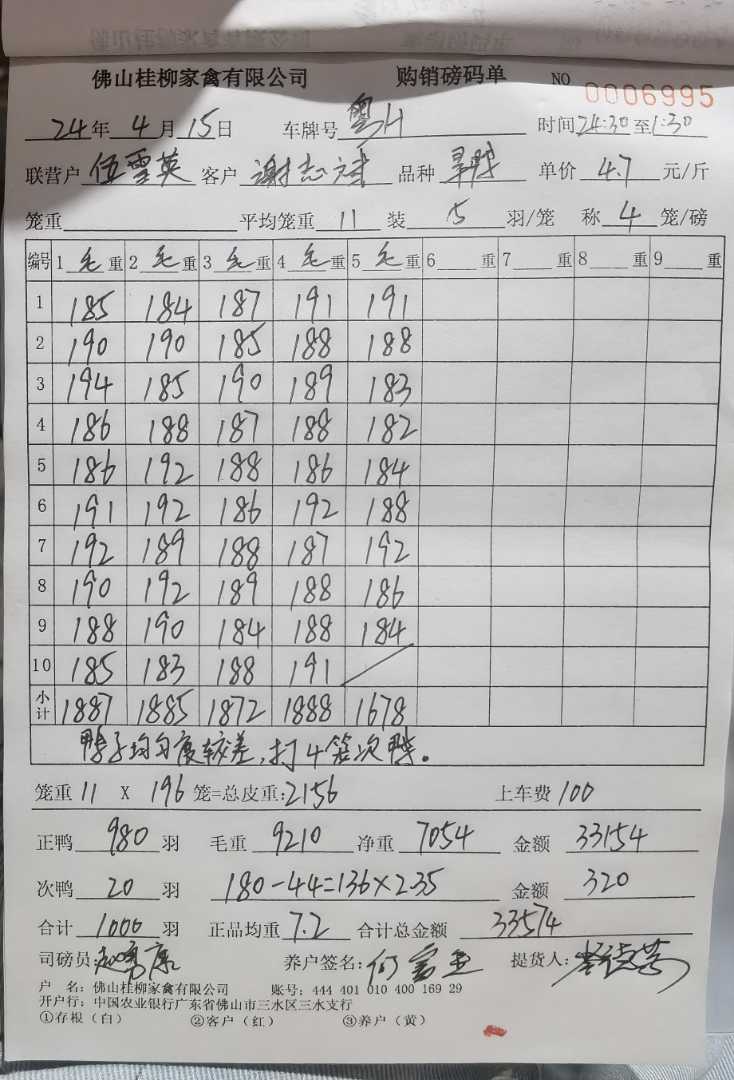 佛山桂柳家禽有限公司 购销磅码单 NO 0006995
24年4月15日 车牌号 粤H 时间24:30至1:30
联营户 伍雪英 客户 谢志 品种 单价 4.7 元/斤
笼重 平均笼重 11 装 5 羽/笼 称 4 笼/磅
编号 1 毛 重 2 毛 重 3 毛 重 4 毛 重 5 毛 重 6 重 7 重 8 重 9 重
1 185 184 187 191 191
2 190 190 185 188 188
3 194 185 190 189 183
4 186 188 187 188 182
5 186 192 188 186 184
6 191 192 186 192 188
7 192 189 188 187 192
8 190 192 189 188 186
9 188 190 184 188 184
10 185 183 188 191
小计 1887 1885 1872 1888 1678
鸭子均匀度较差,打4笼次鸭。
笼重 11 X 196 笼=总皮重:2156 上车费 100
正鸭 980 羽 毛重 9210 净重 7054 金额 33154
次鸭 20 羽 180-44=136×2.35 金额 320
合计 1000 羽 正品均重 7.2 合计总金额 33574
司磅员: 养户签名: 提货人:
户 名:佛山桂柳家禽有限公司 账号:444 401 010 400 169 29
开户行:中国农业银行广东省佛山市三水区三水支行
①存根(白) ②客户(红) ③养户(黄)